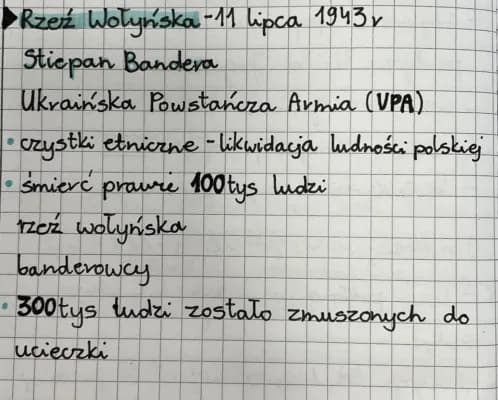 Rzeź Wołyńska - 11 lipca 1943r
Stiepan Bandera
Ukraińska Powstańcza Armia (UPA)
• czystki etniczne - likwidacja ludności polskiej
• śmierć prawie 100tys ludzi
rzeź wołyńska
banderowcy
• 300tys ludzi zostało zmuszonych do
ucieczki